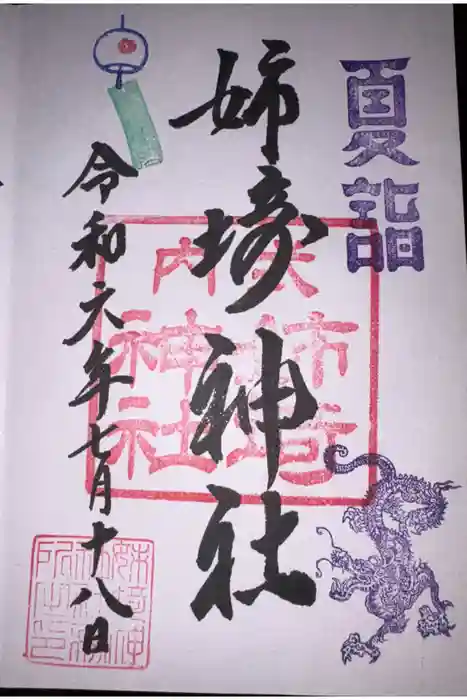 夏詣
姉埼神社
式内
姉埼
神社
令和六年七月十八日
姉埼神
社社務
所之印